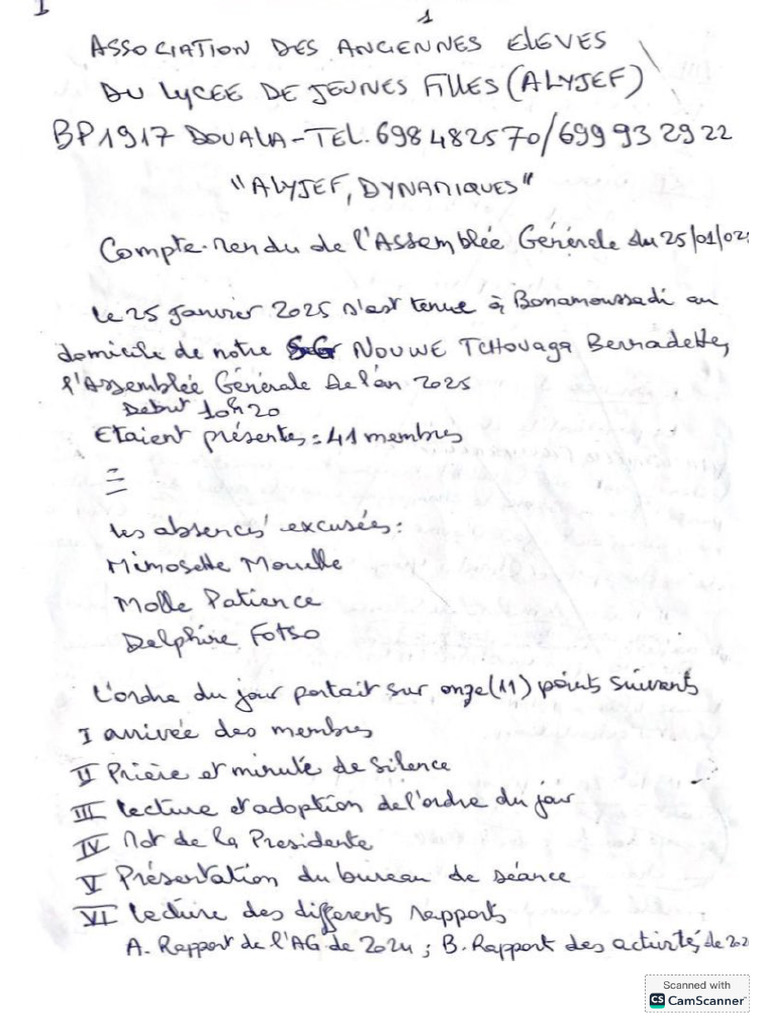 I
1
ASSOCIATION DES ANCIENNES ELEVES
DU LYCEE DE JEUNES FILLES (ALYJEF)
BP1917 DOUALA-TEL. 698482570/699932922
"ALYJEF, DYNAMIQUES"
Compte-rendu de l'Assemblée Générale du 25/01/02
Le 25 Janvier 2025 s'est tenue à Bonamoussadi au
domicile de notre SG NOUWE TCHOUAGA Bernadette,
l'Assemblée Générale de l'an 2025
Début 10h20
Etaient présentes : 41 membres
les absences excusées :
Mimosette Mouelle
Molle Patience
Delphine Fotso
L'ordre du jour portait sur onze (11) points suivants
I arrivée des membres
II Prière et minute de silence
III lecture et adoption de l'ordre du jour
IV Mot de la Presidente
V Présentation du bureau de séance
VI lecture des differents rapports
A. Rapport de l'AG de 2024 ; B. Rapport des activités de 202
Scanned with
CS CamScanner